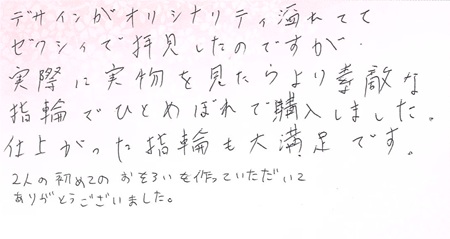 デザインがオリジナリティ溢れてて
ゼクシィで拝見したのですが、
実際に実物を見たらより素敵な
指輪でひとめぼれで購入しました。
仕上がった指輪も大満足です。
2人の初めてのおそろいを作っていただいて
ありがとうございました。